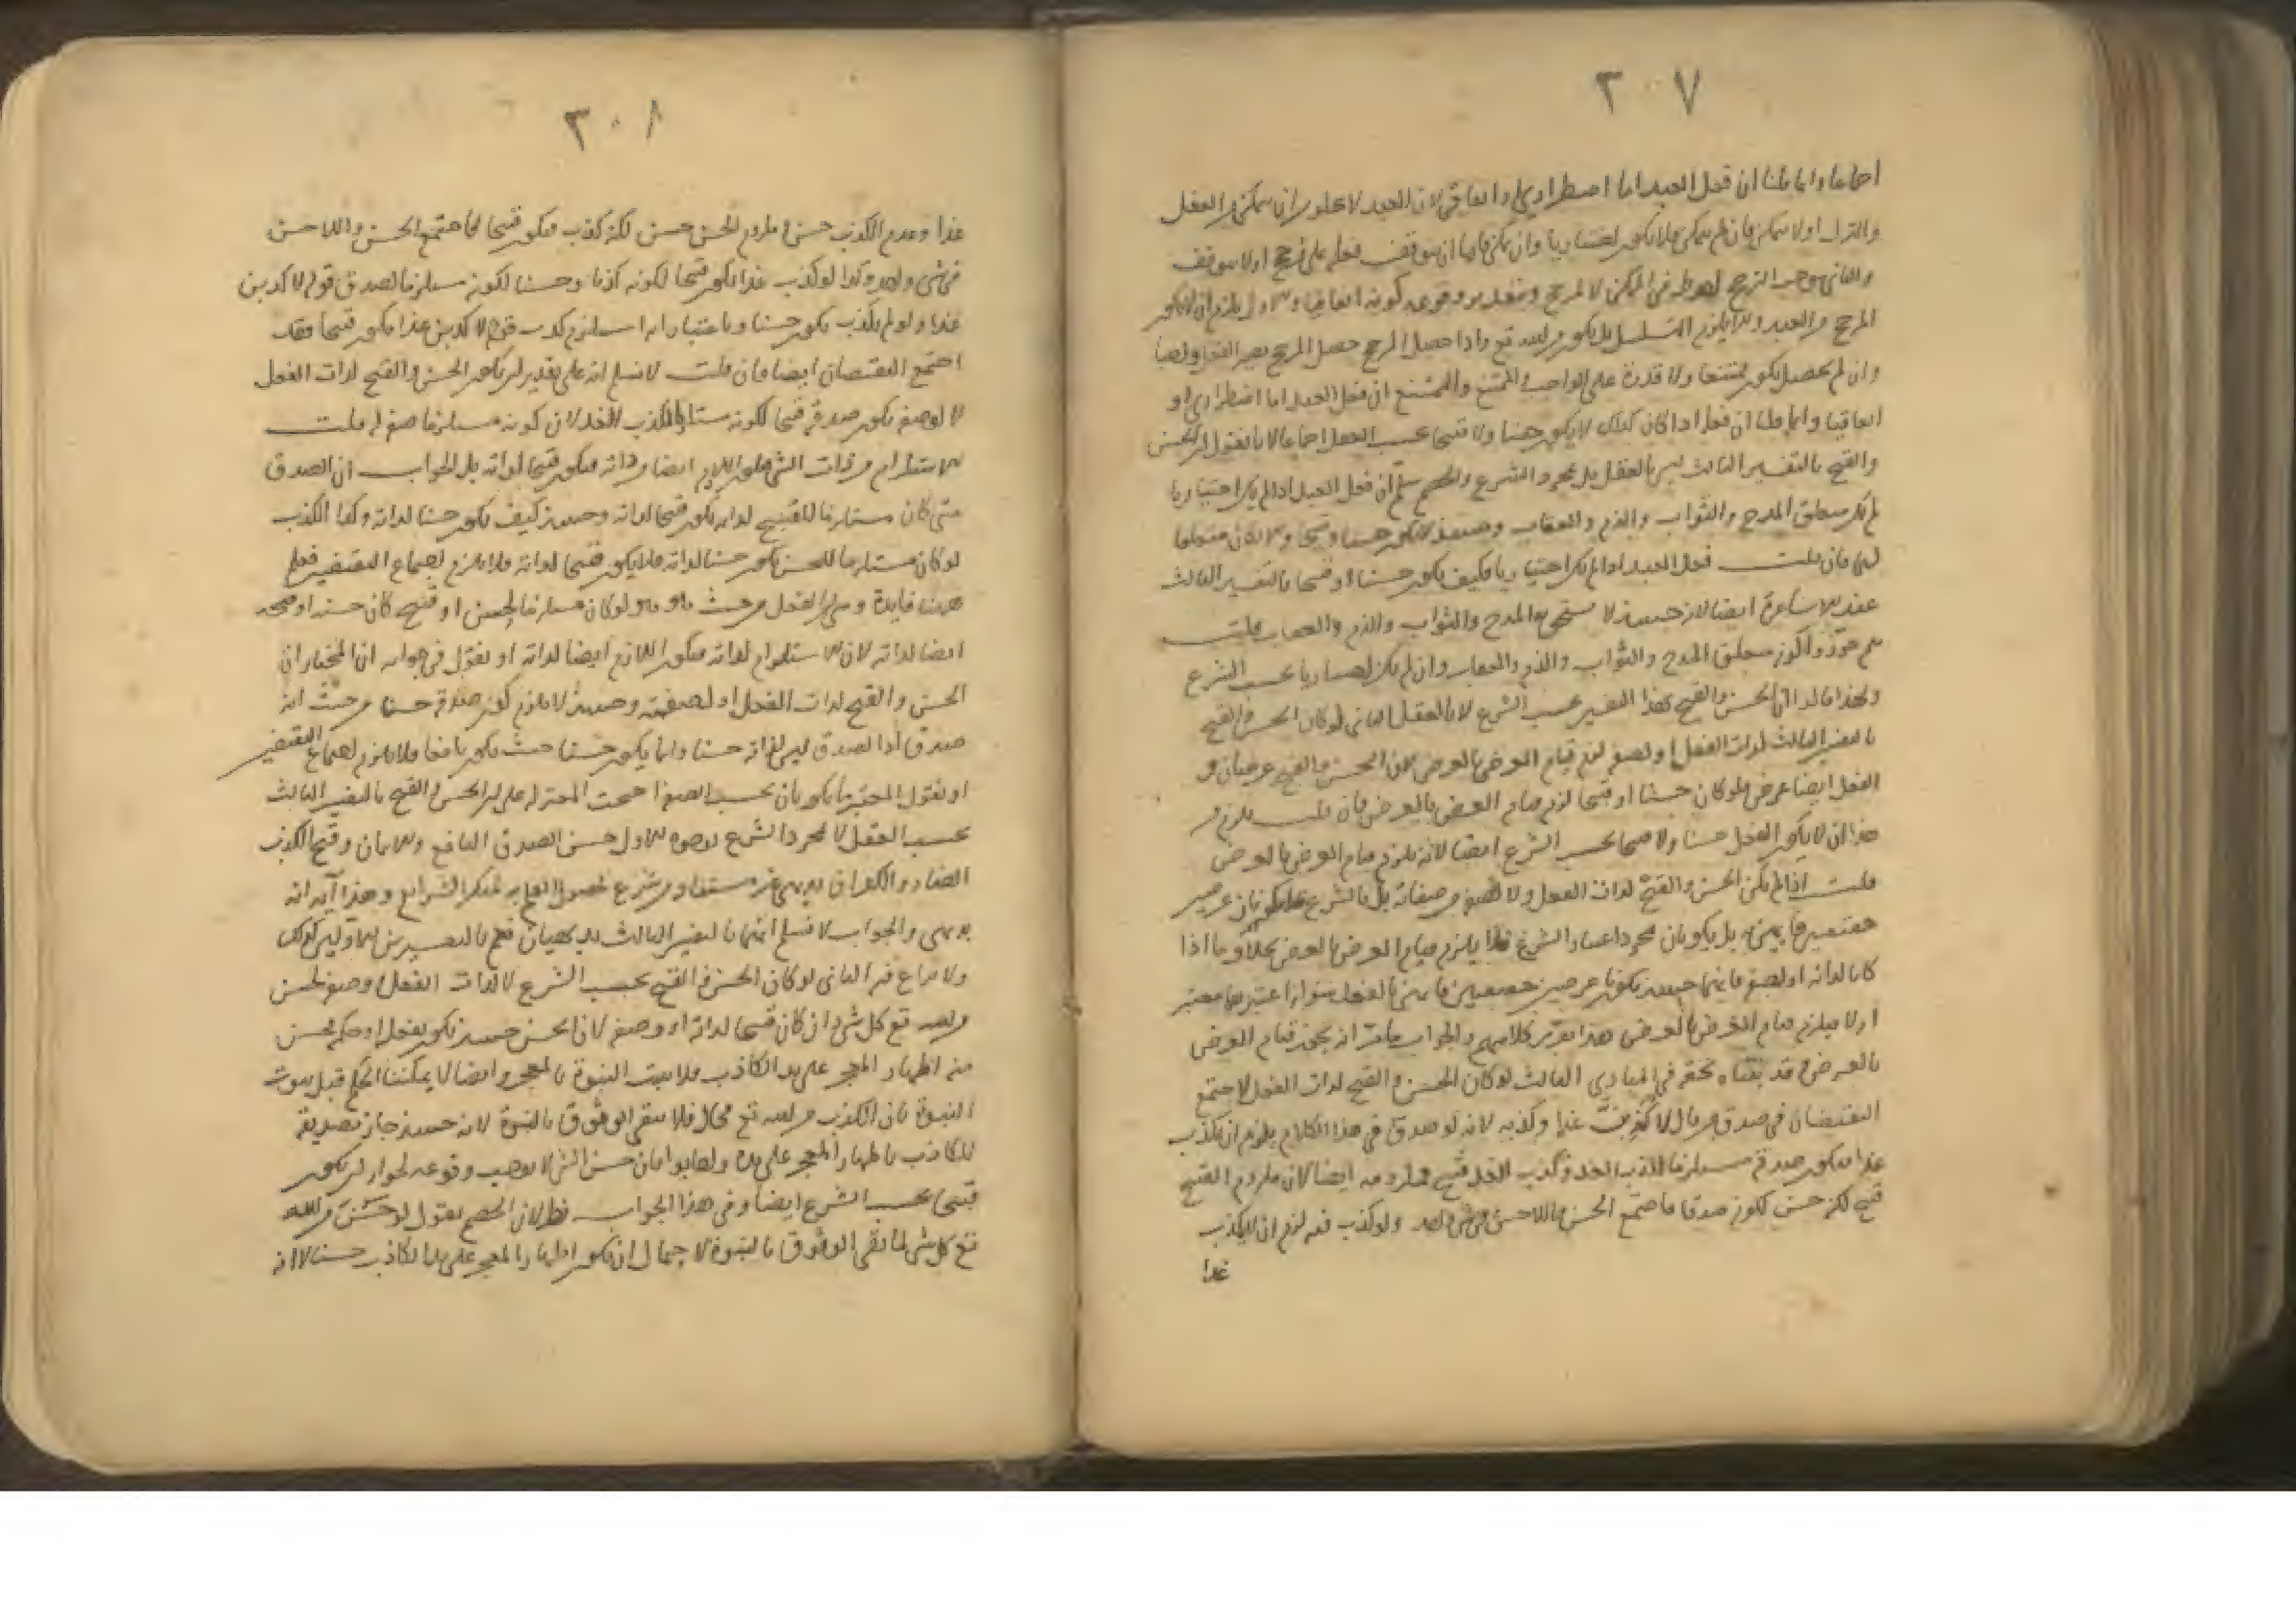 ٣٠٧
اجماعا وانما قلنا ان فعل العبد اما اضطراري او اتفاقي لان العبد لا يخلو من ان يتمكن من الفعل
والترك اولا يتمكن فان لم يتمكن فلا يكون اختياريا وان تمكن فاما ان يتوقف فعله على مرجح اولا يتوقف
والثاني يوجب الترجيح في الممكن لا لمرجح وبتقدير وقوعه كونه اتفاقيا والاول يلزم ان لا يكون
المرجح من العبد والا يلزم التسلسل بل يكون من الله تع واذا حصل المرجح حصل المرجح يصير الفعل واجبا
وان لم يحصل يكون ممتنعا ولا قدرة على الواجب والممتنع ان فعل العبد اما اضطراري او
اتفاقيا وانما قلنا ان فعله اذا كان كذلك لا يكون حسنا ولا قبيحا بحسب العقل اجماعا لانا نقول الحسن
والقبح بالتفسير الثالث ليس بالعقل بل بمجرد الشرع والخصم سلم ان فعل العبد اذا لم يكن اختياريا
لم يكن متعلق المدح والثواب والذم والعقاب وحينئذ لا يكون حسنا وقبيحا والا لكان متعلقا
لها فان قلت فعل العبد اذا لم يكن اختياريا فكيف يكون حسنا او قبيحا بالتفسير الثالث
عند الاشاعرة ايضا لانه حينئذ لا يستحق المدح والثواب والذم والعقاب قلت
هم جوزوا كونه متعلق المدح والثواب والذم والعقاب وان لم يكن اختياريا بحسب الشرع
ولهذا قالوا الحسن والقبح بهذا التفسير بحسب الشرع لا بالعقل الثاني لو كان الحسن والقبح
بالتفسير الثالث لذات الفعل او لصفته لزم قيام العرض بالعرض لان الحسن والقبح عرضيان و
الفعل ايضا عرض فلو كان حسنا او قبيحا لزم قيام العرض بالعرض فان قلت يلزم من
هذا ان لا يكون الفعل حسنا ولا قبيحا بحسب الشرع ايضا لانه يلزم قيام العرض بالعرض
قلت اذا لم يكن الحسن والقبح لذات الفعل ولا لصفة من صفاته بل بالشرع فلا يكونان عرضين
حقيقيين قائمين به بل يكونان بمجرد اعتبار الشرع فلا يلزم قيام العرض بالعرض بخلاف ما اذا
كانا لذاته او لصفته فانهما حينئذ يكونان عرضين حقيقيين قائمين بالفعل سواء اعتبرهما معتبر
اولا فيلزم قيام العرض بالعرض هذا تقرير كلامهم والجواب ما مر انه يجوز قيام العرض
بالعرض وقد بيناه بتحقيقه في المبادي الثالث لو كان الحسن والقبح لذات الفعل لاجتمع
النقيضان في صدق من قال لاكذبن غدا وكذبه لانه لو صدق في هذا الكلام يلزم ان يكذب
غدا فيكون صدقه مستلزما لكذب الغد وكذب الغد قبيح فملزومه ايضا لان ملزوم القبيح
قبيح لكنه حسن لكونه صدقا فاجتمع الحسن واللاحسن في شئ واحد ولو كذب فيه لزم ان لا يكذب
غدا
٣٠٨
غدا وعدم الكذب حسن وملزوم الحسن حسن لكنه كذب فيكون قبيحا فاجتمع الحسن واللاحسن
في شئ واحد وكذا لو كذب غدا يكون قبيحا لكونه كذبا وحسنا لكونه مستلزما لصدق قوله لاكذبن
غدا ولو لم يكذب يكون حسنا وباعتبار انه استلزم كذب قوله لاكذبن غدا يكون قبيحا فقد
اجتمع النقيضان ايضا فان قلت لا نسلم انه على تقدير ان يكون الحسن والقبح لذات الفعل
لا لوصفه يكون صدقه قبيحا لكونه مستلزما لكذب الغد لان كونه مستلزما صفة له قلت
الاستلزام من ذات الشئ فلو اللازم ايضا من ذاته فيكون قبيحا لذاته بل الجواب ان الصدق
متى كان مستلزما للقبيح لذاته يكون قبيحا لذاته وحينئذ كيف يكون حسنا لذاته وكذا الكذب
لو كان مستلزما للحسن يكون حسنا لذاته فلا يكون قبيحا لذاته فلا يلزم اجتماع النقيضين فعلم
ايضا لذاته لان الاستلزام لذاته فيكون اللازم ايضا لذاته او نقول في جوابه ان المختار ان
الحسن والقبح لذات الفعل او لصفته وحينئذ لا يلزم كون صدقه حسنا من حيث انه
صدق اذ الصدق ليس لذاته حسنا وانما يكون حسنا حيث يكون نافعا فلا يلزم اجتماع النقيضين
احتجت المعتزلة على ان الحسن والقبح بالتفسير الثالث
بحسب العقل لا لمجرد الشرع بوجوه الاول حسن الصدق النافع والايمان وقبح الكذب
الضار والكفران بديهي غير مستفاد من شرع لحصول العلم به لمنكر الشرايع وهذا آية انه
بديهي والجواب لا نسلم انهما بالتفسير الثالث بديهيان نعم بالتفسيرين الاولين كذلك
ولا نزاع فيه الثاني لو كان الحسن والقبح بحسب الشرع لا لذات الفعل او وصفه لحسن
من الله تع كل شئ وان كان قبيحا لذاته او وصفه لان الحسن حينئذ يكون بفعله او حكمه فحسن
منه اظهار المعجز على يد الكاذب فلا يثبت النبوة بالمعجز وايضا لا يمكننا الحكم قبل ثبوت
النبوة بان الكذب من الله تع محال فلا يبقى الوثوق بالنبوة لانه حينئذ جاز تصديقه
للكاذب باظهار المعجز على يده واجابوا بان حسن الشئ لا يوجب وقوعه لجواز ان يكون
قبيحا بحسب الشرع ايضا وفي هذا الجواب نظر لان الخصم يقول لو حسن من الله
تع كل شئ لما بقي الوثوق بالنبوة لاحتمال ان يكون اظهار المعجز على يد الكاذب حسنا لا انه